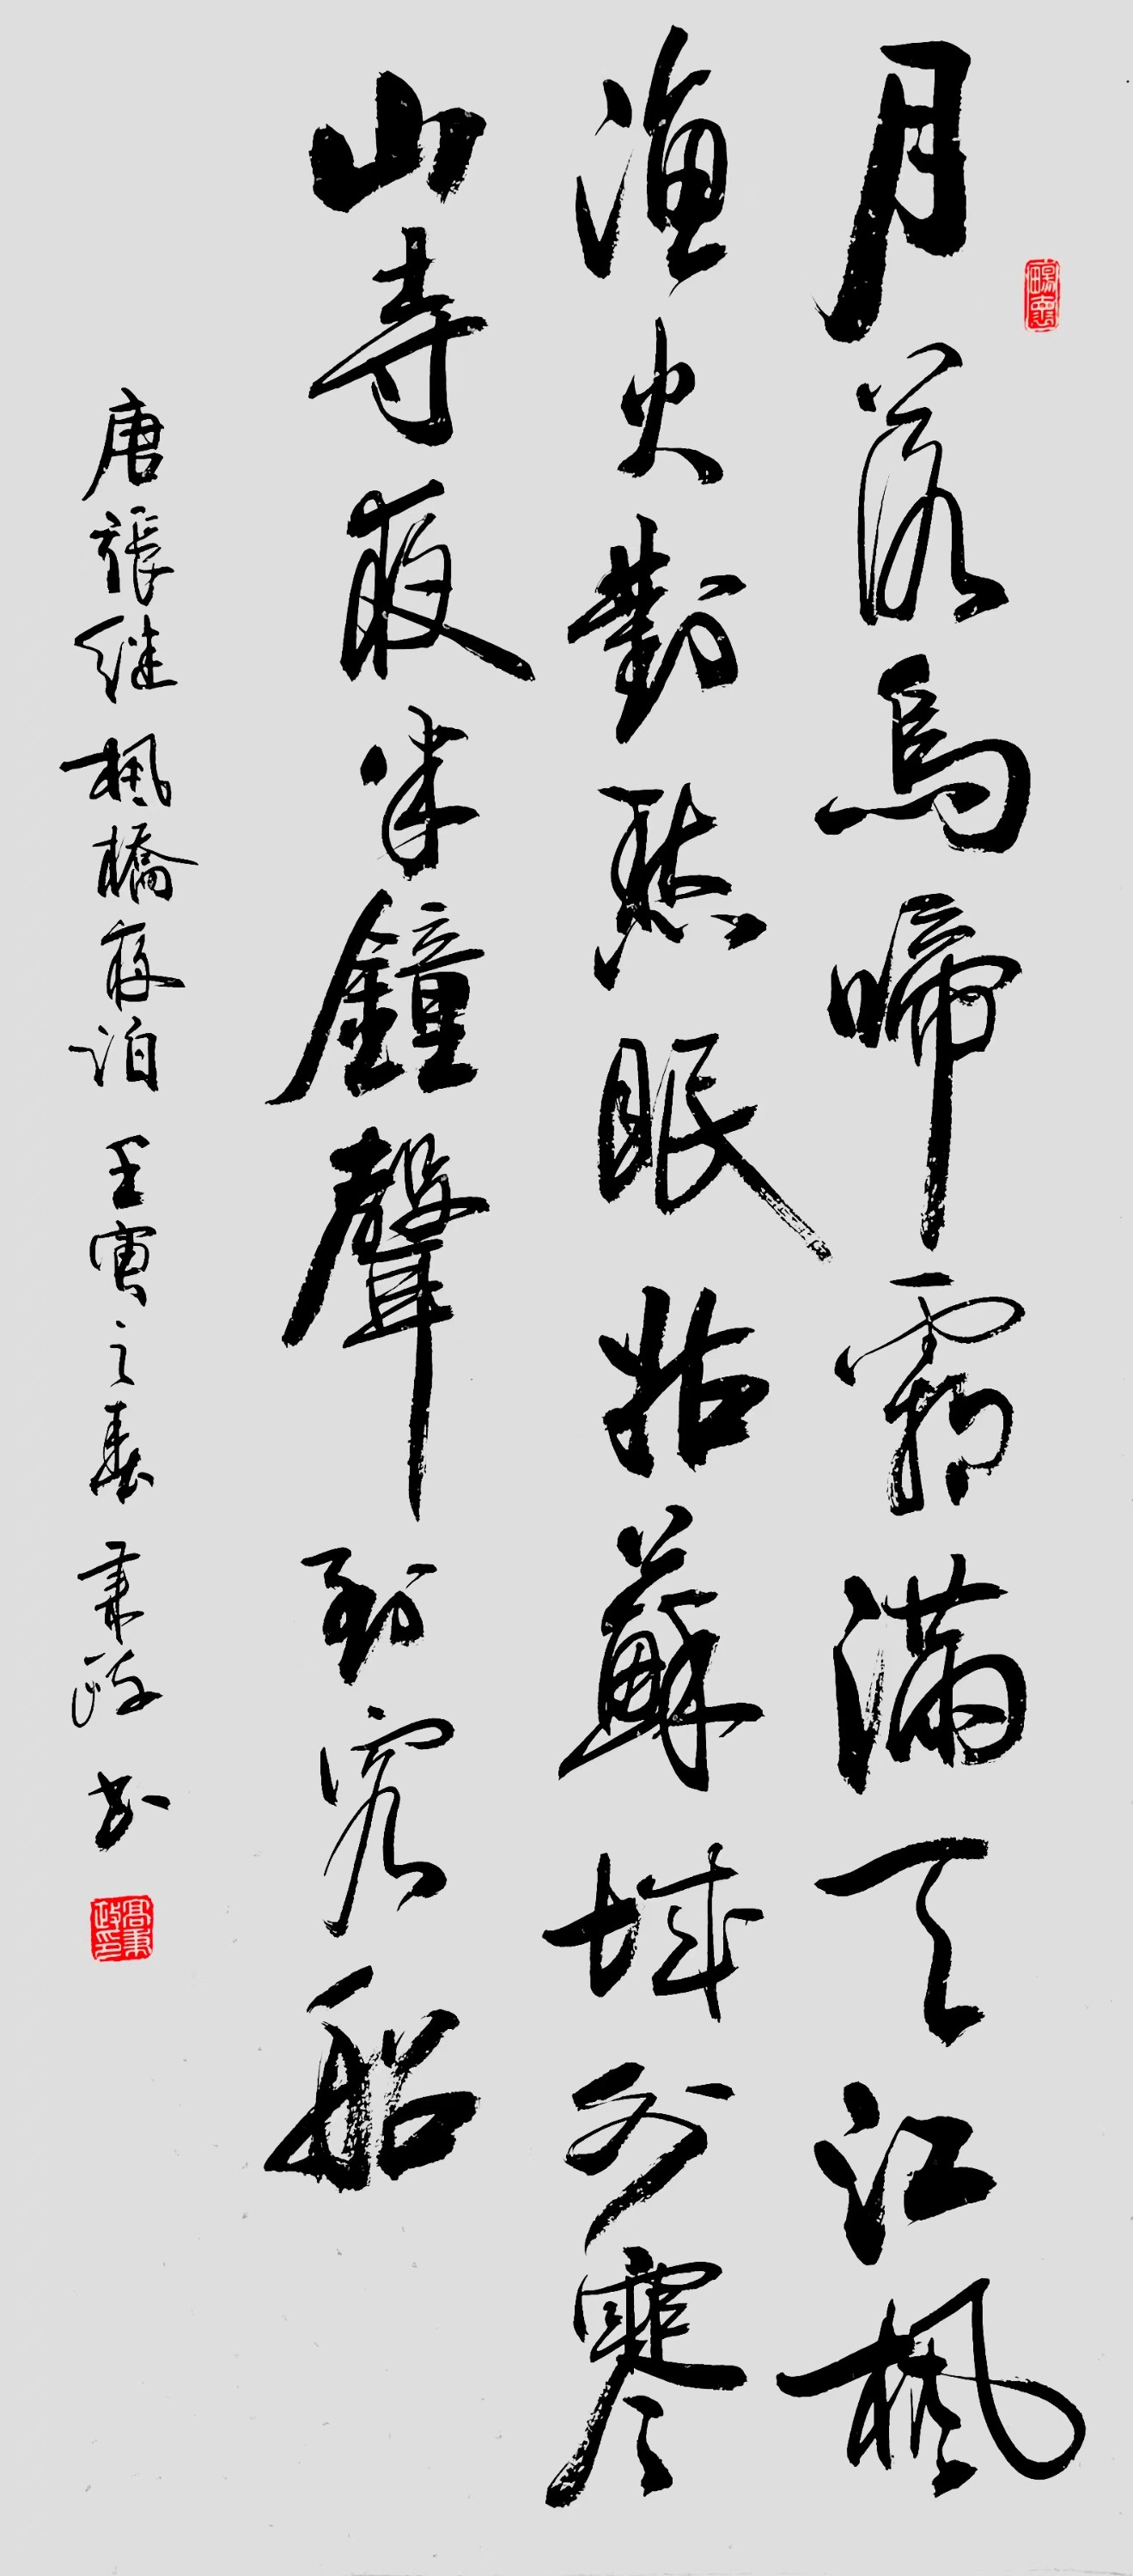 月落烏啼霜滿天江楓
漁火對愁眠姑蘇城外寒
山寺夜半鐘聲到客船
唐張继楓橋夜泊 壬寅之春 秉政书
高秉政印